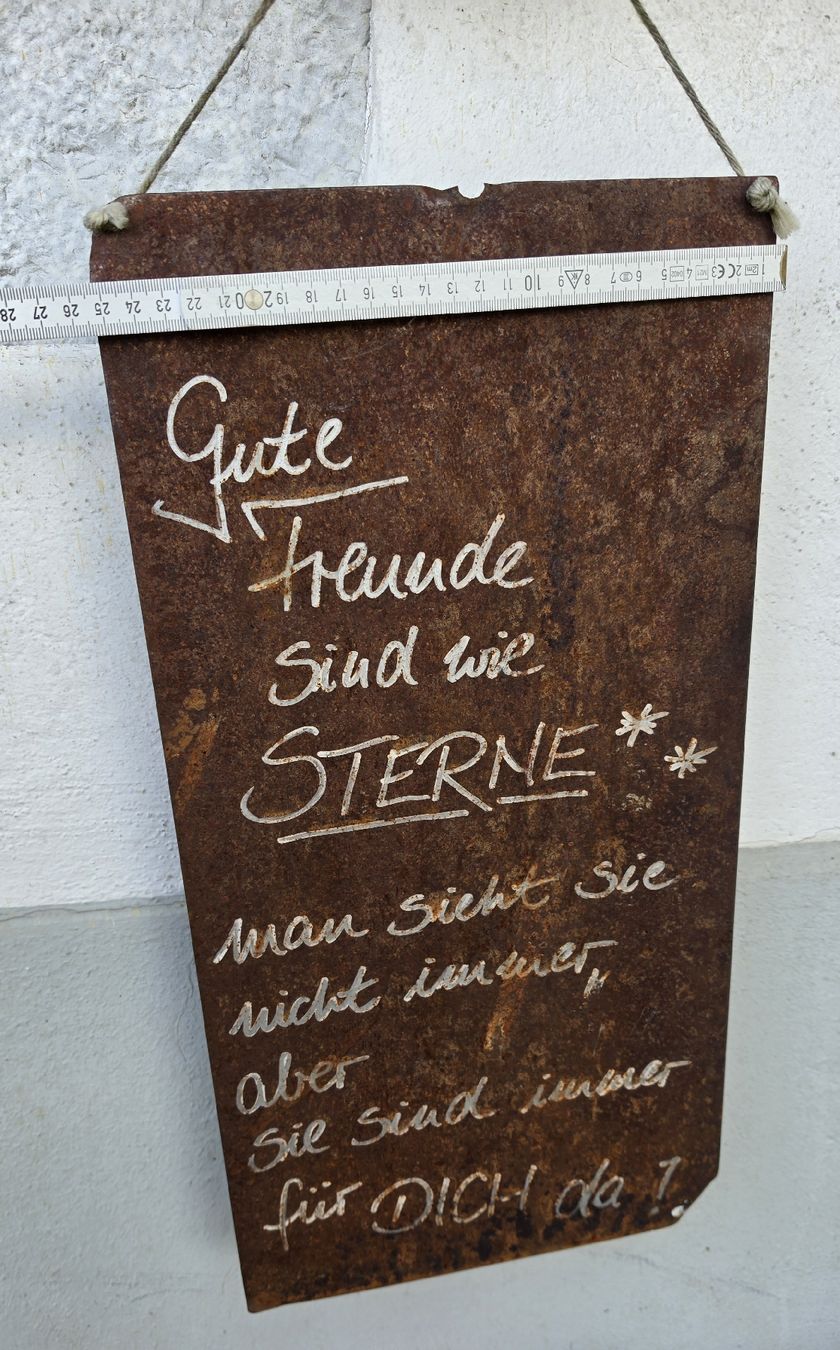 28 27 26 25 24 23 22 21 20 19 18 17 16 15 14 13 12 11 10 9 8 7 6 5 4 3 2 1
Gute
Freunde
sind wie
STERNE**
man sieht sie
nicht immer,
aber
sie sind immer
für DICH da!